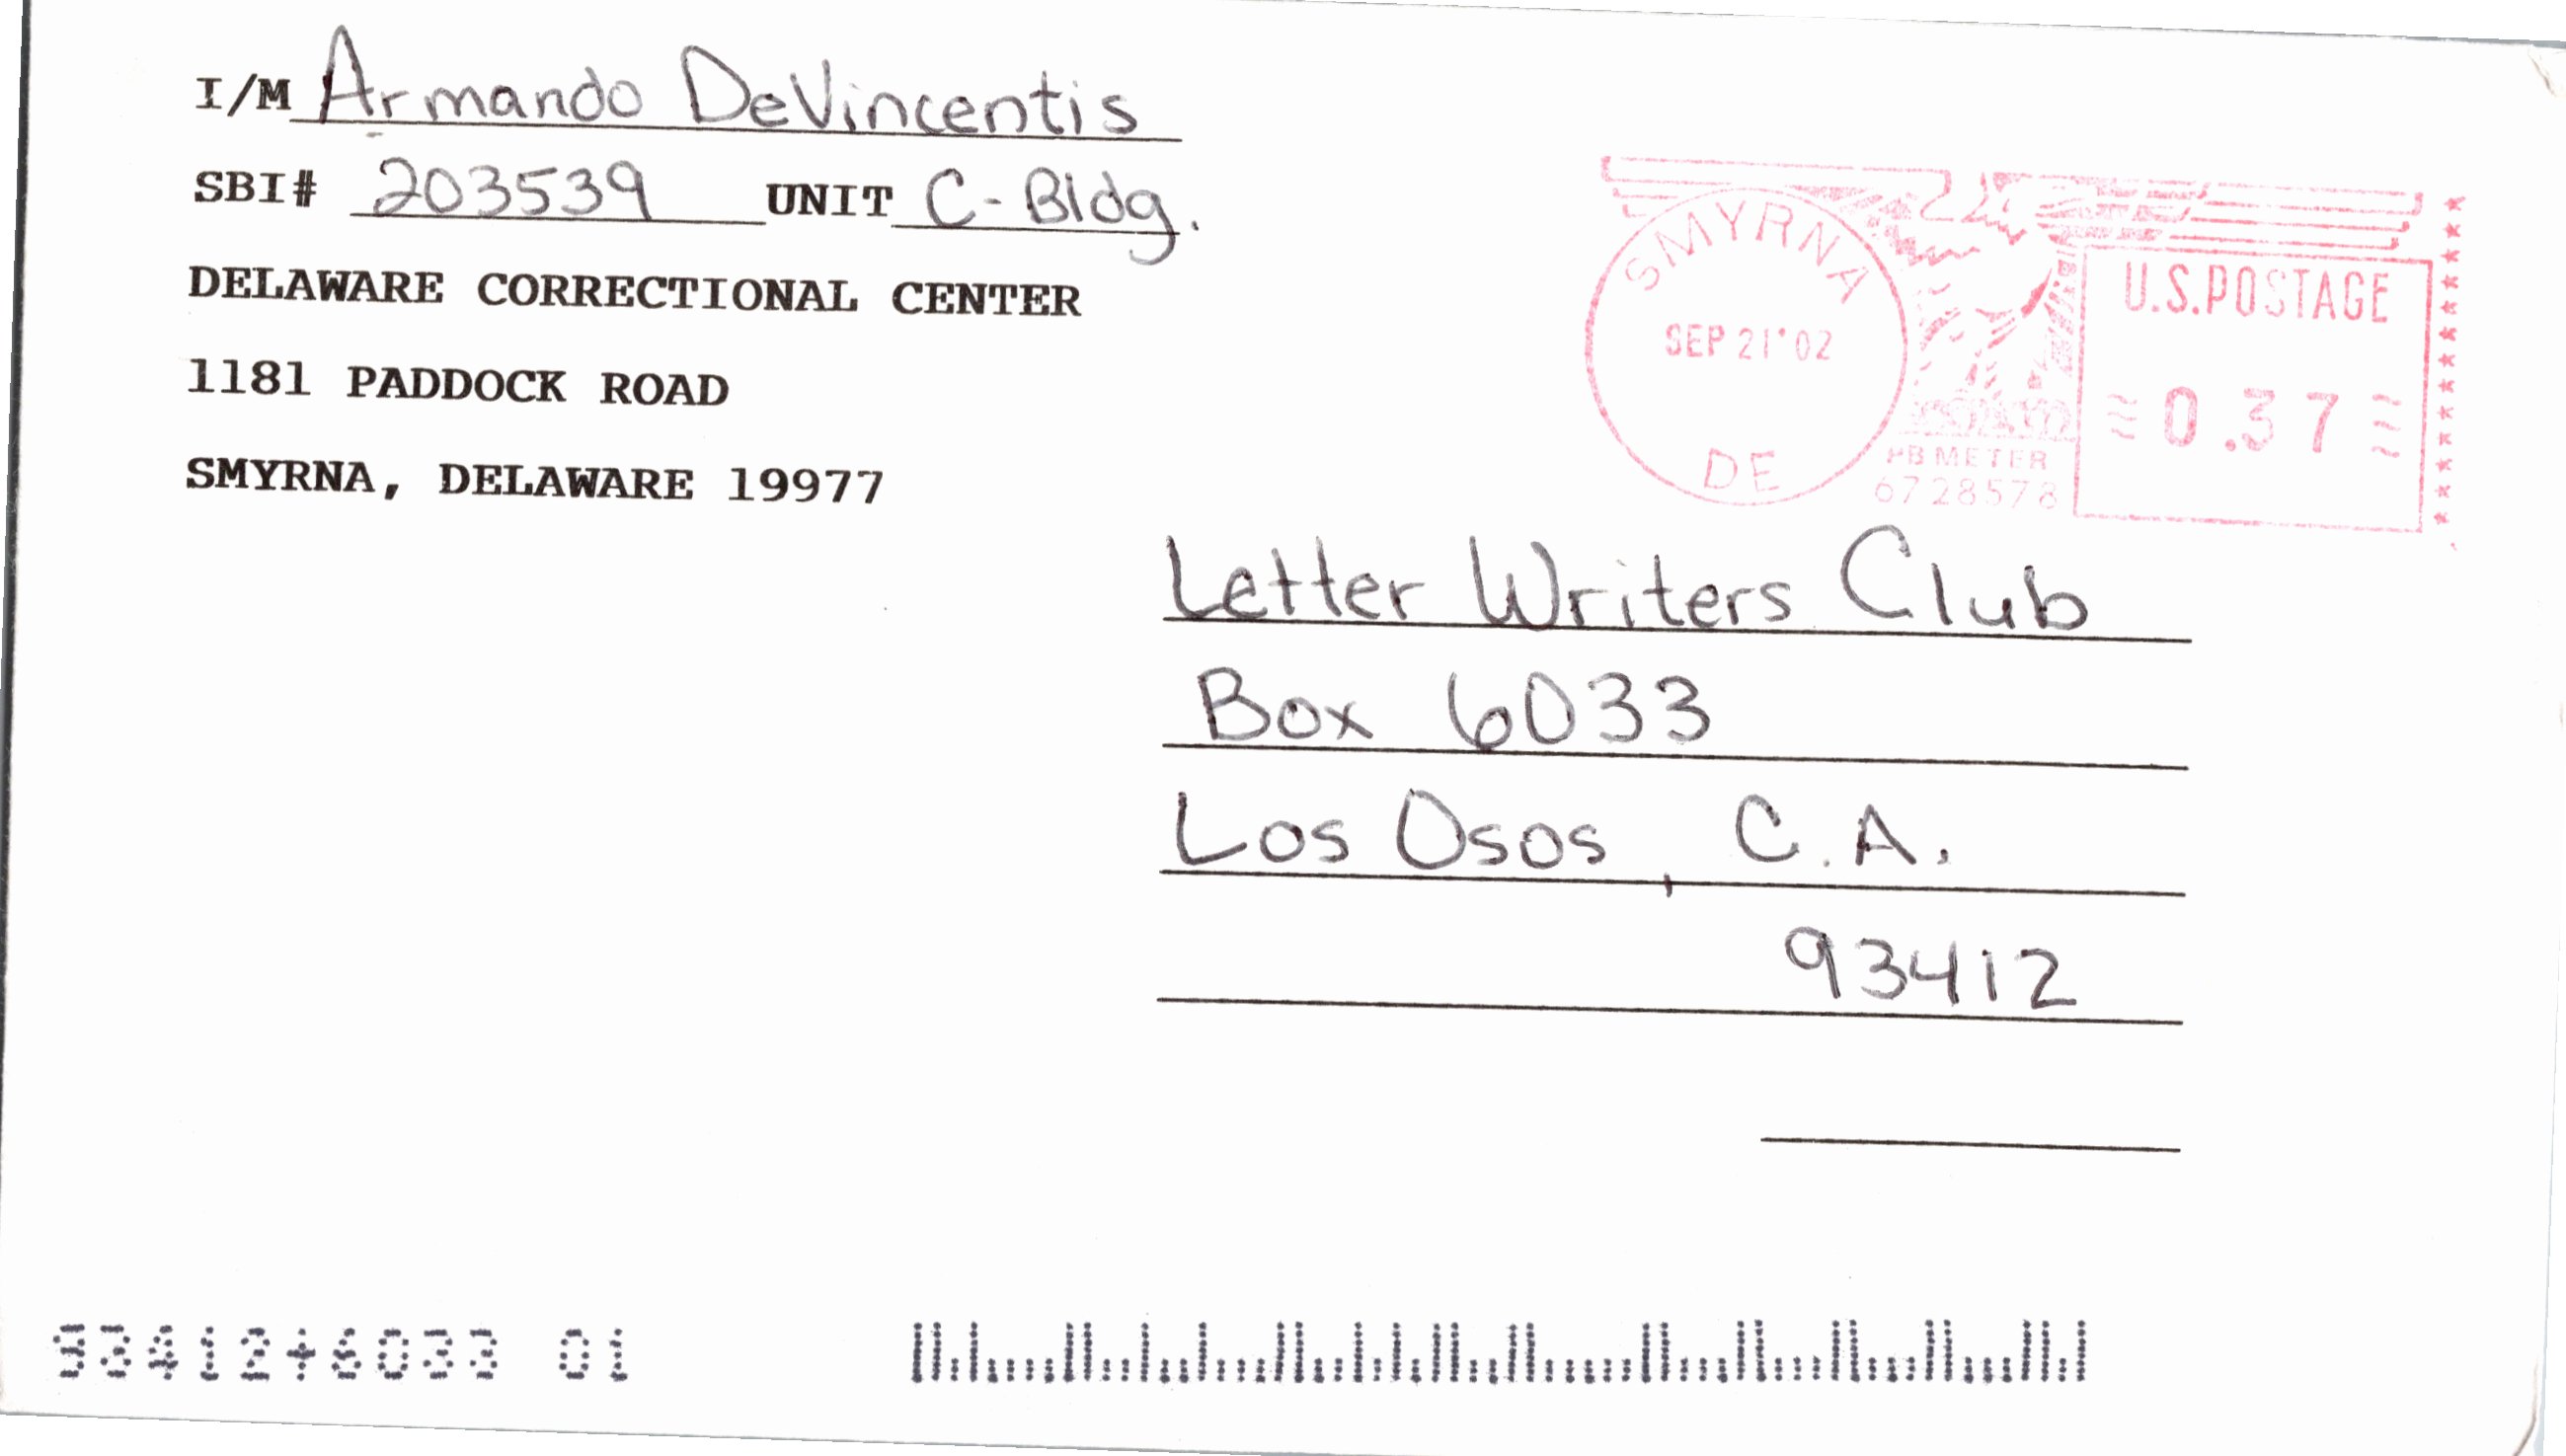 I/M Armando DeVincentis
SBI# 203539 UNIT C-Bldg.
DELAWARE CORRECTIONAL CENTER
1181 PADDOCK ROAD
SMYRNA, DELAWARE 19977
SMYRNA
SEP 21'02
DE
PB METER
6728578
U.S.POSTAGE
0.37
Letter Writers Club
Box 6033
Los Osos, C.A.
93412
93412+6033 01